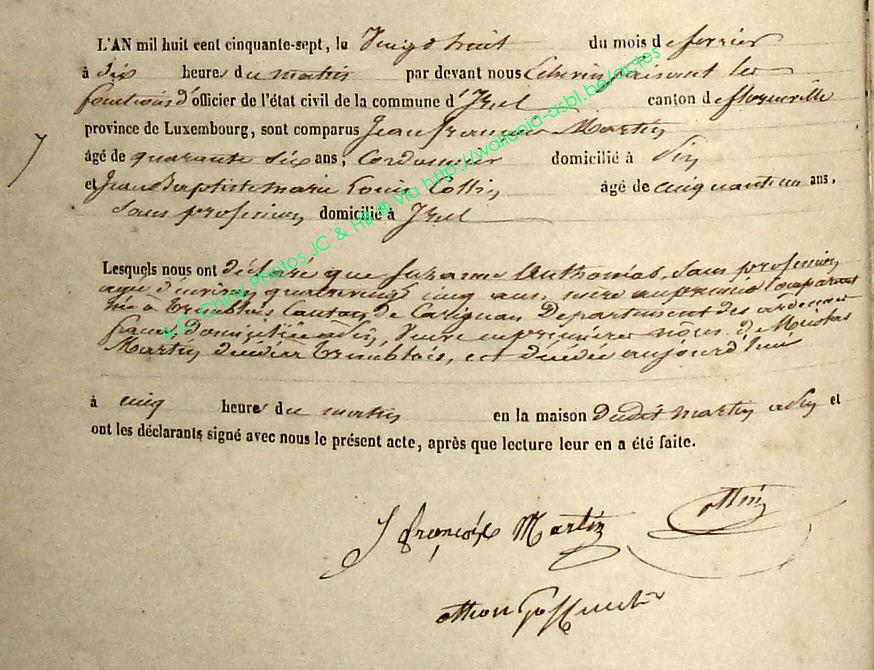 L'AN mil huit cent cinquante-sept, le Vingt huit du mois de fevrier
à dix heures du matin par devant nous Echevin faisant les
fonctions d'officier de l'état civil de la commune d'Izel canton de florenville
province de Luxembourg, sont comparus Jean françois Martin
7
âgé de quarante six ans, Cordonnier domicilié à Pin
et Jean Baptiste marie Louis Collin âgé de cinquante un ans,
Sans profession domicilié à Izel
Lesquels nous ont déclaré que Suzanne Anthomas, Sans profession
agée d'environ quatre vingt cinq ans, mère au premier Comparant
née à Tremblois Canton de Carignan Departement des ardennes
france, domiciliée a Pin, Veuve en premières nôces de Nicolas
Martin décédé a Tremblois, est décédée aujourd'hui
à cinq heures du matin en la maison Dudit Martin a Pin et
ont les déclarants signé avec nous le présent acte, après que lecture leur en a été faite.
J françois Martin Collin
A.C. Chiny Photos JC & HB @ via http://wallonia-asbl.be/actes